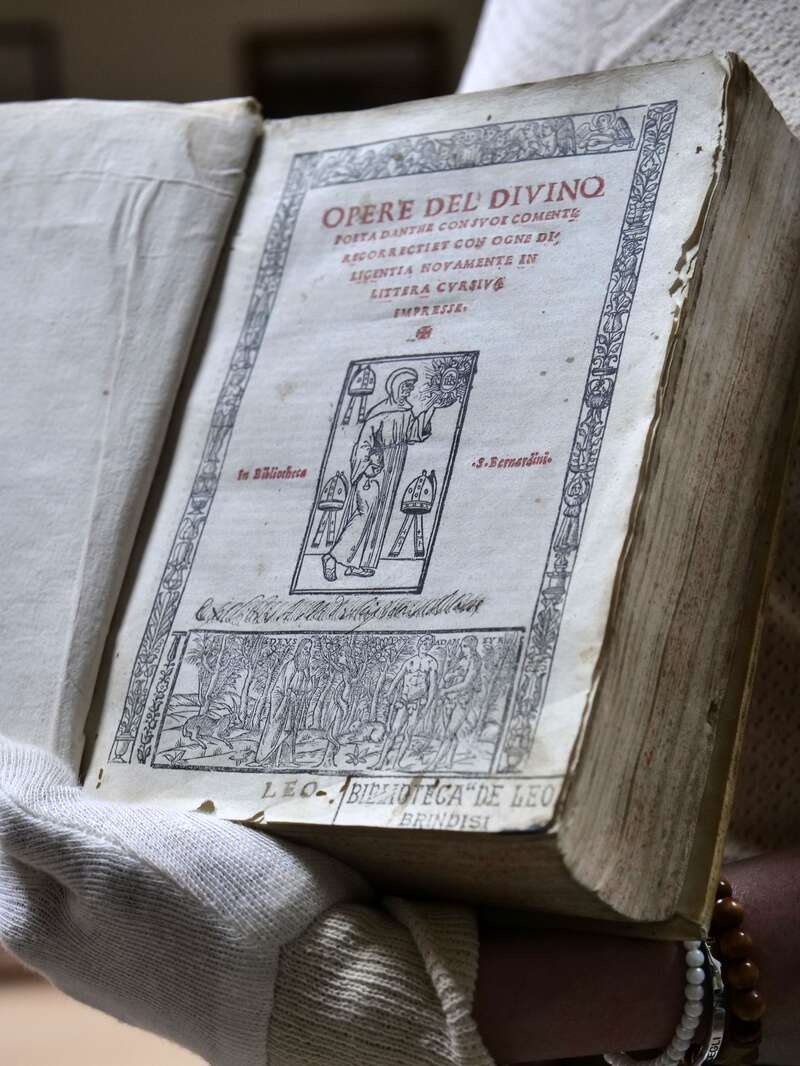 OPERE DEL DIVINO
POETA DANTHE CON SVOI COMENTI
RECORRECTI ET CON OGNE DI
LIGENTIA NOVAMENTE IN
LITTERA CVRSIVA
IMPRESSE.
In Bibliotheca
.S. Bernardini.
DEVS
ADAM
EVA
LEO
BIBLIOTECA "DE LEO
BRINDISI